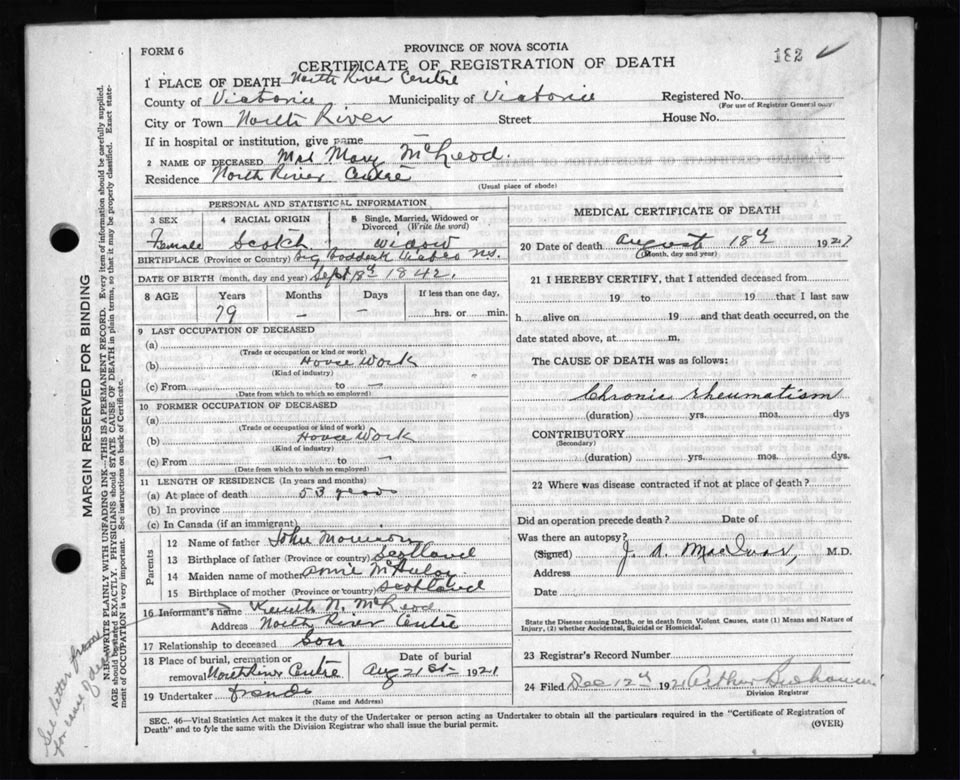 FORM 6
PROVINCE OF NOVA SCOTIA
182 ✓
CERTIFICATE OF REGISTRATION OF DEATH
1 PLACE OF DEATH North River Centre
County of Victoria Municipality of Victoria Registered No.
(For use of Registrar General only)
City or Town North River Street House No.
If in hospital or institution, give name —
2 NAME OF DECEASED Mrs Mary McLeod.
Residence North River Centre
(Usual place of abode)
PERSONAL AND STATISTICAL INFORMATION
3 SEX 4 RACIAL ORIGIN 5 Single, Married, Widowed or Divorced, (Write the word)
Female Scotch widow
BIRTHPLACE (Province or Country) Big Baddeck N.S.
DATE OF BIRTH (month, day and year) Sept 18th 1842.
8 AGE Years Months Days If less than one day,
79 — — hrs. or min.
9 LAST OCCUPATION OF DECEASED
(a)
(Trade or occupation or kind or work)
(b) House Work
(Kind of industry)
(c) From to —
(Date from which to which so employed)
10 FORMER OCCUPATION OF DECEASED
(a)
(Trade or occupation or kind of work)
(b) House Work
(Kind of industry)
(c) From to —
(Date from which to which so employed)
11 LENGTH OF RESIDENCE (In years and months)
(a) At place of death 53 years
(b) In province
(c) In Canada (if an immigrant)
Parents
12 Name of father John Morrison
13 Birthplace of father (Province or country) Scotland
14 Maiden name of mother
15 Birthplace of mother (Province or country) Scotland
16 Informant's name Kenneth N. McLeod
Address North River Centre
17 Relationship to deceased Son
18 Place of burial, cremation or removal North River Centre Date of burial Aug 21st 1921
19 Undertaker friends
(Name and Address)
MEDICAL CERTIFICATE OF DEATH
20 Date of death August 18th 1921
(Month, day and year)
21 I HEREBY CERTIFY, that I attended deceased from
19 to 19 that I last saw
h alive on 19 and that death occurred, on
date stated above, at m.
The CAUSE OF DEATH was as follows:
Chronic rheumatism
(duration) yrs. mos. dys
CONTRIBUTORY
(Secondary)
(duration) yrs. mos. dys.
22 Where was disease contracted if not at place of death?
Did an operation precede death? Date of
Was there an autopsy?
(Signed) J. A. MacIvor, M.D.
Address
Date
State the Disease causing Death, or in death from Violent Causes, state (1) Means and Nature of Injury, (2) whether Accidental, Suicidal or Homicidal.
23 Registrar's Record Number
24 Filed Dec 12th 1921 Arthur Buchanan
Division Registrar
SEC. 46—Vital Statistics Act makes it the duty of the Undertaker or person acting as Undertaker to obtain all the particulars required in the "Certificate of Registration of
Death" and to fyle the same with the Division Registrar who shall issue the burial permit.
(OVER)
MARGIN RESERVED FOR BINDING
N.B.—WRITE PLAINLY WITH UNFADING INK—THIS IS A PERMANENT RECORD. Every item of information should be carefully supplied.
AGE should be stated EXACTLY. PHYSICIANS should STATE CAUSE OF DEATH in plain terms, so that it may be properly classified. Exact statement of OCCUPATION is very important. See instructions on back of Certificate.
See letter from
for cause of death